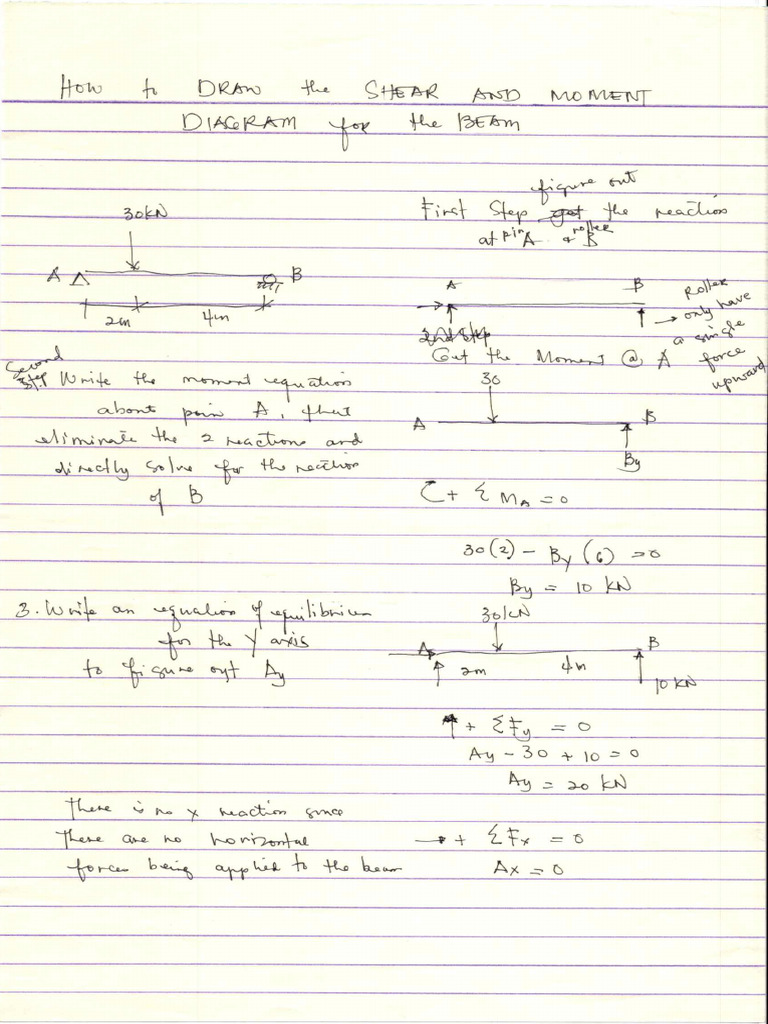 HOW to DRAW the SHEAR AND MOMENT
DIAGRAM for the BEAM
figure out
First Step get the reaction
at pin A & roller B
30kN
A B
2m 4m
A B
Roller
→ only have
a single
force
upward
2nd Step
Get the Moment @ A
Second
Step Write the moment equation
about pin A, that
eliminate the 2 reactions and
directly solve for the reaction
of B
30
A B
By
+ Σ MA = 0
30(2) - By (6) = 0
By = 10 kN
3. Write an equation of equilibrium
for the Y axis
to figure out Ay
30kN
A B
2m 4m
10 kN
↑ + ΣFy = 0
Ay - 30 + 10 = 0
Ay = 20 kN
There is no x reaction since
There are no horizontal
forces being applied to the beam
→ + ΣFx = 0
Ax = 0